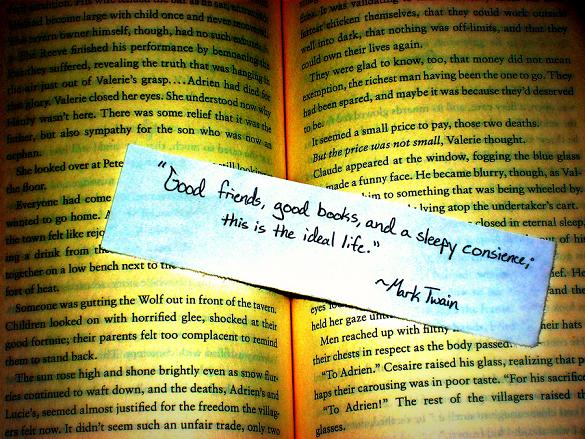 become large with child once and never
tavern owner himself, though, had no such
The Reeve finished his performance by bemoaning
they suffered, revealing the truth that was hanging in
the air just out of Valerie's grasp.... Adrien had died for
the glory. Valerie closed her eyes. She understood now why
Henry wasn't here. There was some relief that it was the
father, but also sympathy for the son who was now an
orphan.
She looked over at Pete
the floor.
Everyone had come
wanted to go home. A
the town felt like rejo
ing a drink from the
together on a low bench next to the
fort of heat.
Someone was gutting the Wolf out in front of the tavern.
Children looked on with horrified glee, shocked at their
good fortune; their parents felt too complacent to remind
them to stand back.
The sun rose high and shone brightly even as snow flur-
ries continued to waft down, and the deaths, Adrien's and
Lucie's, seemed almost justified for the freedom the villag-
ers felt now. It didn't seem such an unfair trade, only two
chicken themselves, that they could work outside
well into dark, that nothing was off-limits, and that they
could own their lives again.
They were glad to know, too, that money did not mean
exemption, the richest man having been the one to go. They
had been spared, and maybe it was because they'd deserved
to be.
It seemed a small price to pay, those two deaths.
But the price was not small, Valerie thought.
Claude appeared at the window, fogging the blue glass
made a funny face. He became blurry, though, as Val-
him to something that was being wheeled by
lying atop the undertaker's cart.
closed in eternal sleep.
eyes
held her gaze until
Men reached up with filthy
their hats
their chests in respect as the body passed.
"To Adrien." Cesaire raised his glass, realizing that
haps their carousing was in poor taste. "For his sacrifice
"To Adrien!" The rest of the villagers raised
glasses.
"Good friends, good books, and a sleepy consience;
this is the ideal life."
~Mark Twain